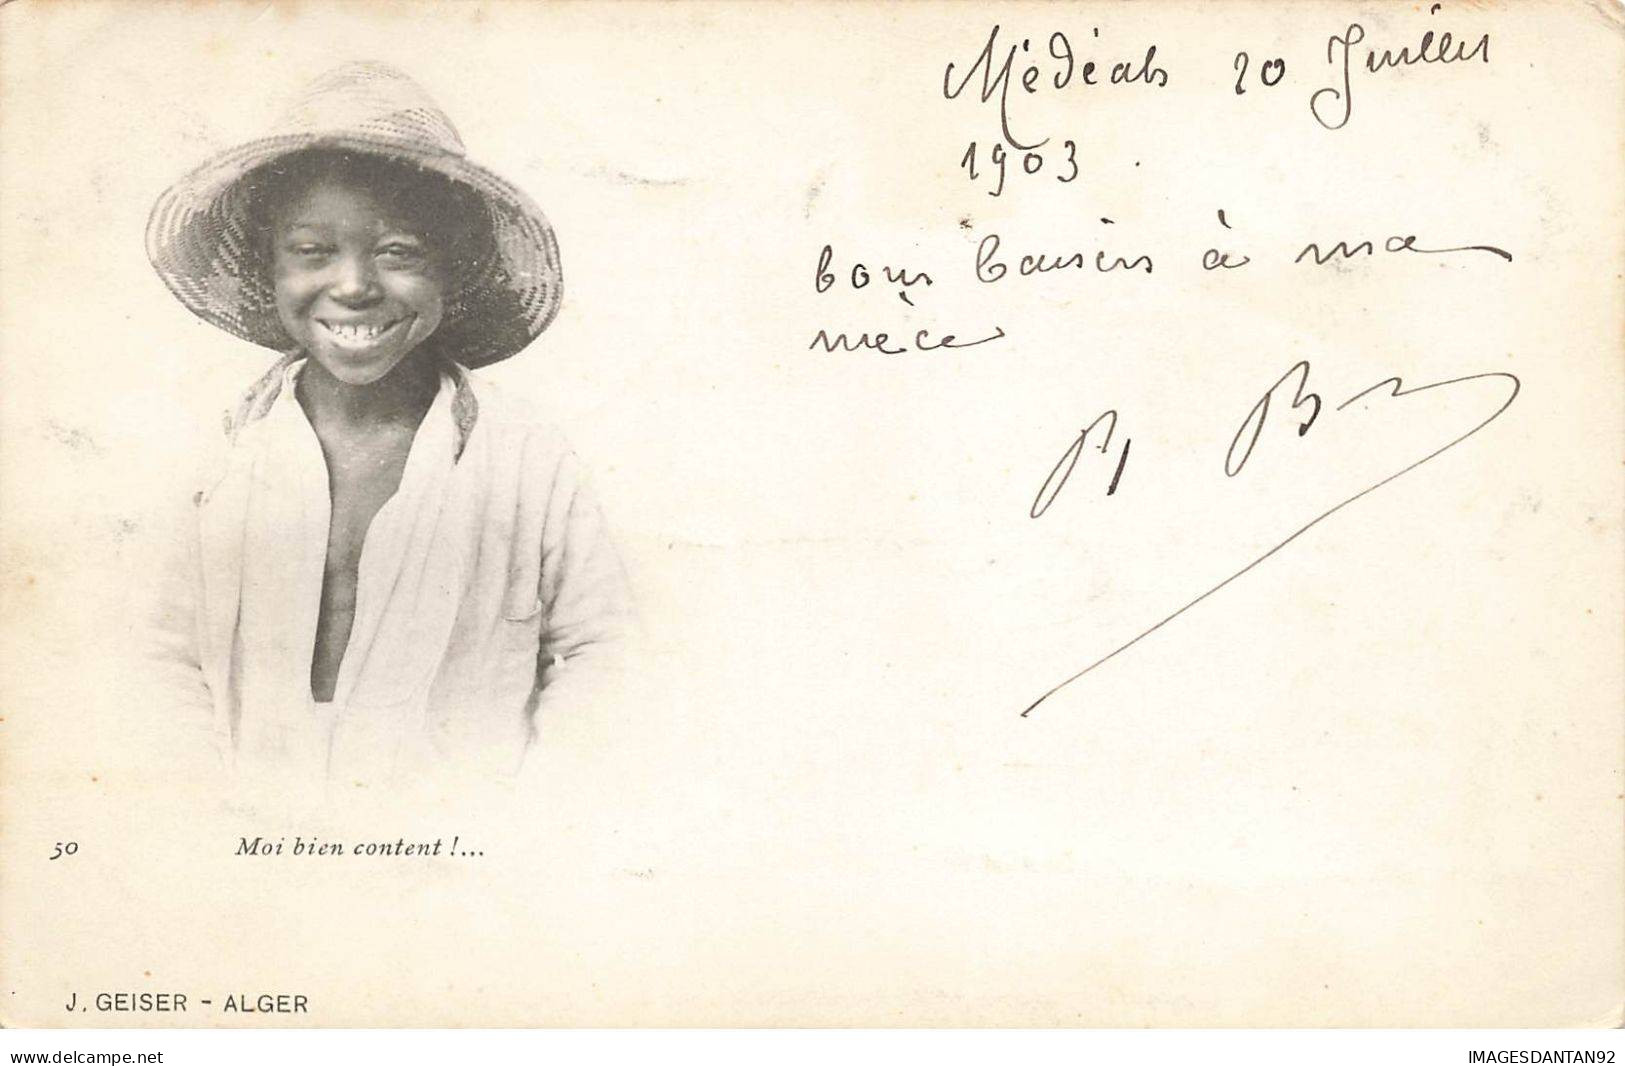 Médéah 20 Juillet
1903.
bons baisers à ma
nièce
B B
50 Moi bien content !...
J. GEISER - ALGER
www.delcampe.net IMAGESDANTAN92